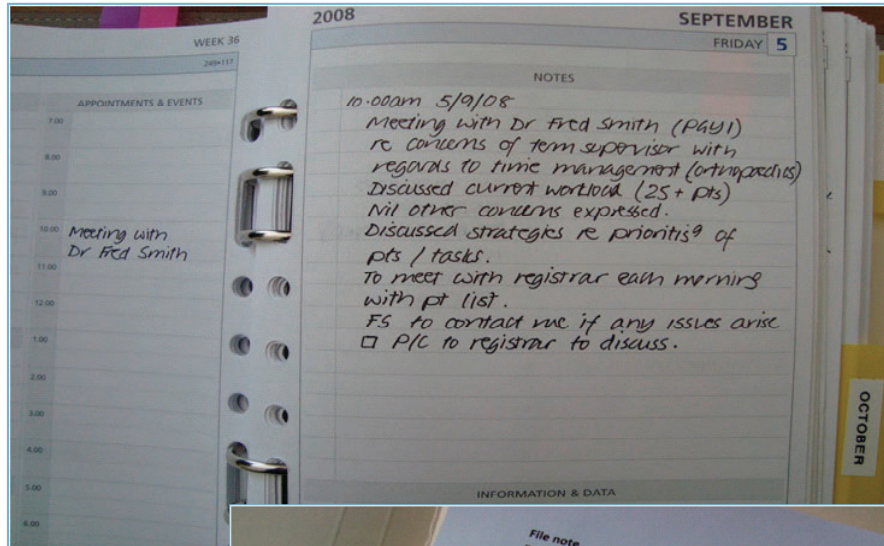 WEEK 36
249•117
APPOINTMENTS & EVENTS
7.00
8.00
9.00
10.00 Meeting with
Dr Fred Smith
11.00
12.00
1.00
2.00
3.00
4.00
5.00
6.00
2008 SEPTEMBER
FRIDAY 5
NOTES
10.00am 5/9/08
Meeting with Dr Fred Smith (PGY1)
re concerns of term supervisor with
regards to time management (orthopaedics)
Discussed current workload (25+ pts)
Nil other concerns expressed.
Discussed strategies re prioritisg of
pts / tasks.
To meet with registrar each morning
with pt list.
FS to contact me if any issues arise
□ P/C to registrar to discuss.
INFORMATION & DATA
OCTOBER
File note